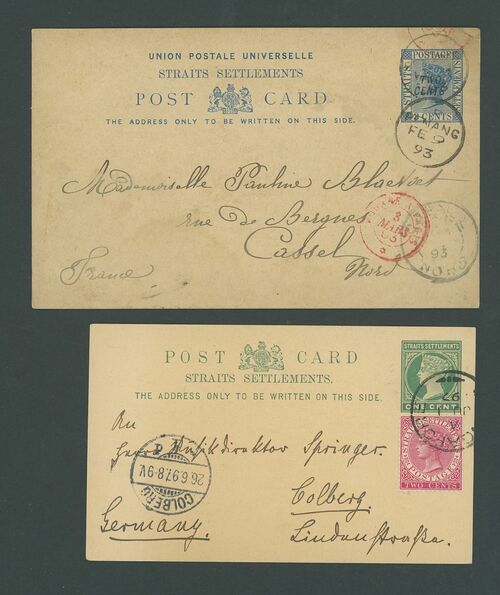 UNION POSTALE UNIVERSELLE
STRAITS SETTLEMENTS
POST CARD
THE ADDRESS ONLY TO BE WRITTEN ON THIS SIDE.
POSTAGE
TWO
CENTS
CENTS
FE
93
Mademoiselle Pauline
rue de Bergues
Cassel
Nord
France
MARS
93
93
POST CARD
STRAITS SETTLEMENTS.
THE ADDRESS ONLY TO BE WRITTEN ON THIS SIDE.
STRAITS SETTLEMENTS
ONE CENT
97
STRAITS SETTLEMENTS
POSTAGE
TWO CENTS
An
Herrn Musikdirektor Springer.
Colberg.
Lindenstraße.
Germany.
COLBERG
26.6.97.8-9V.